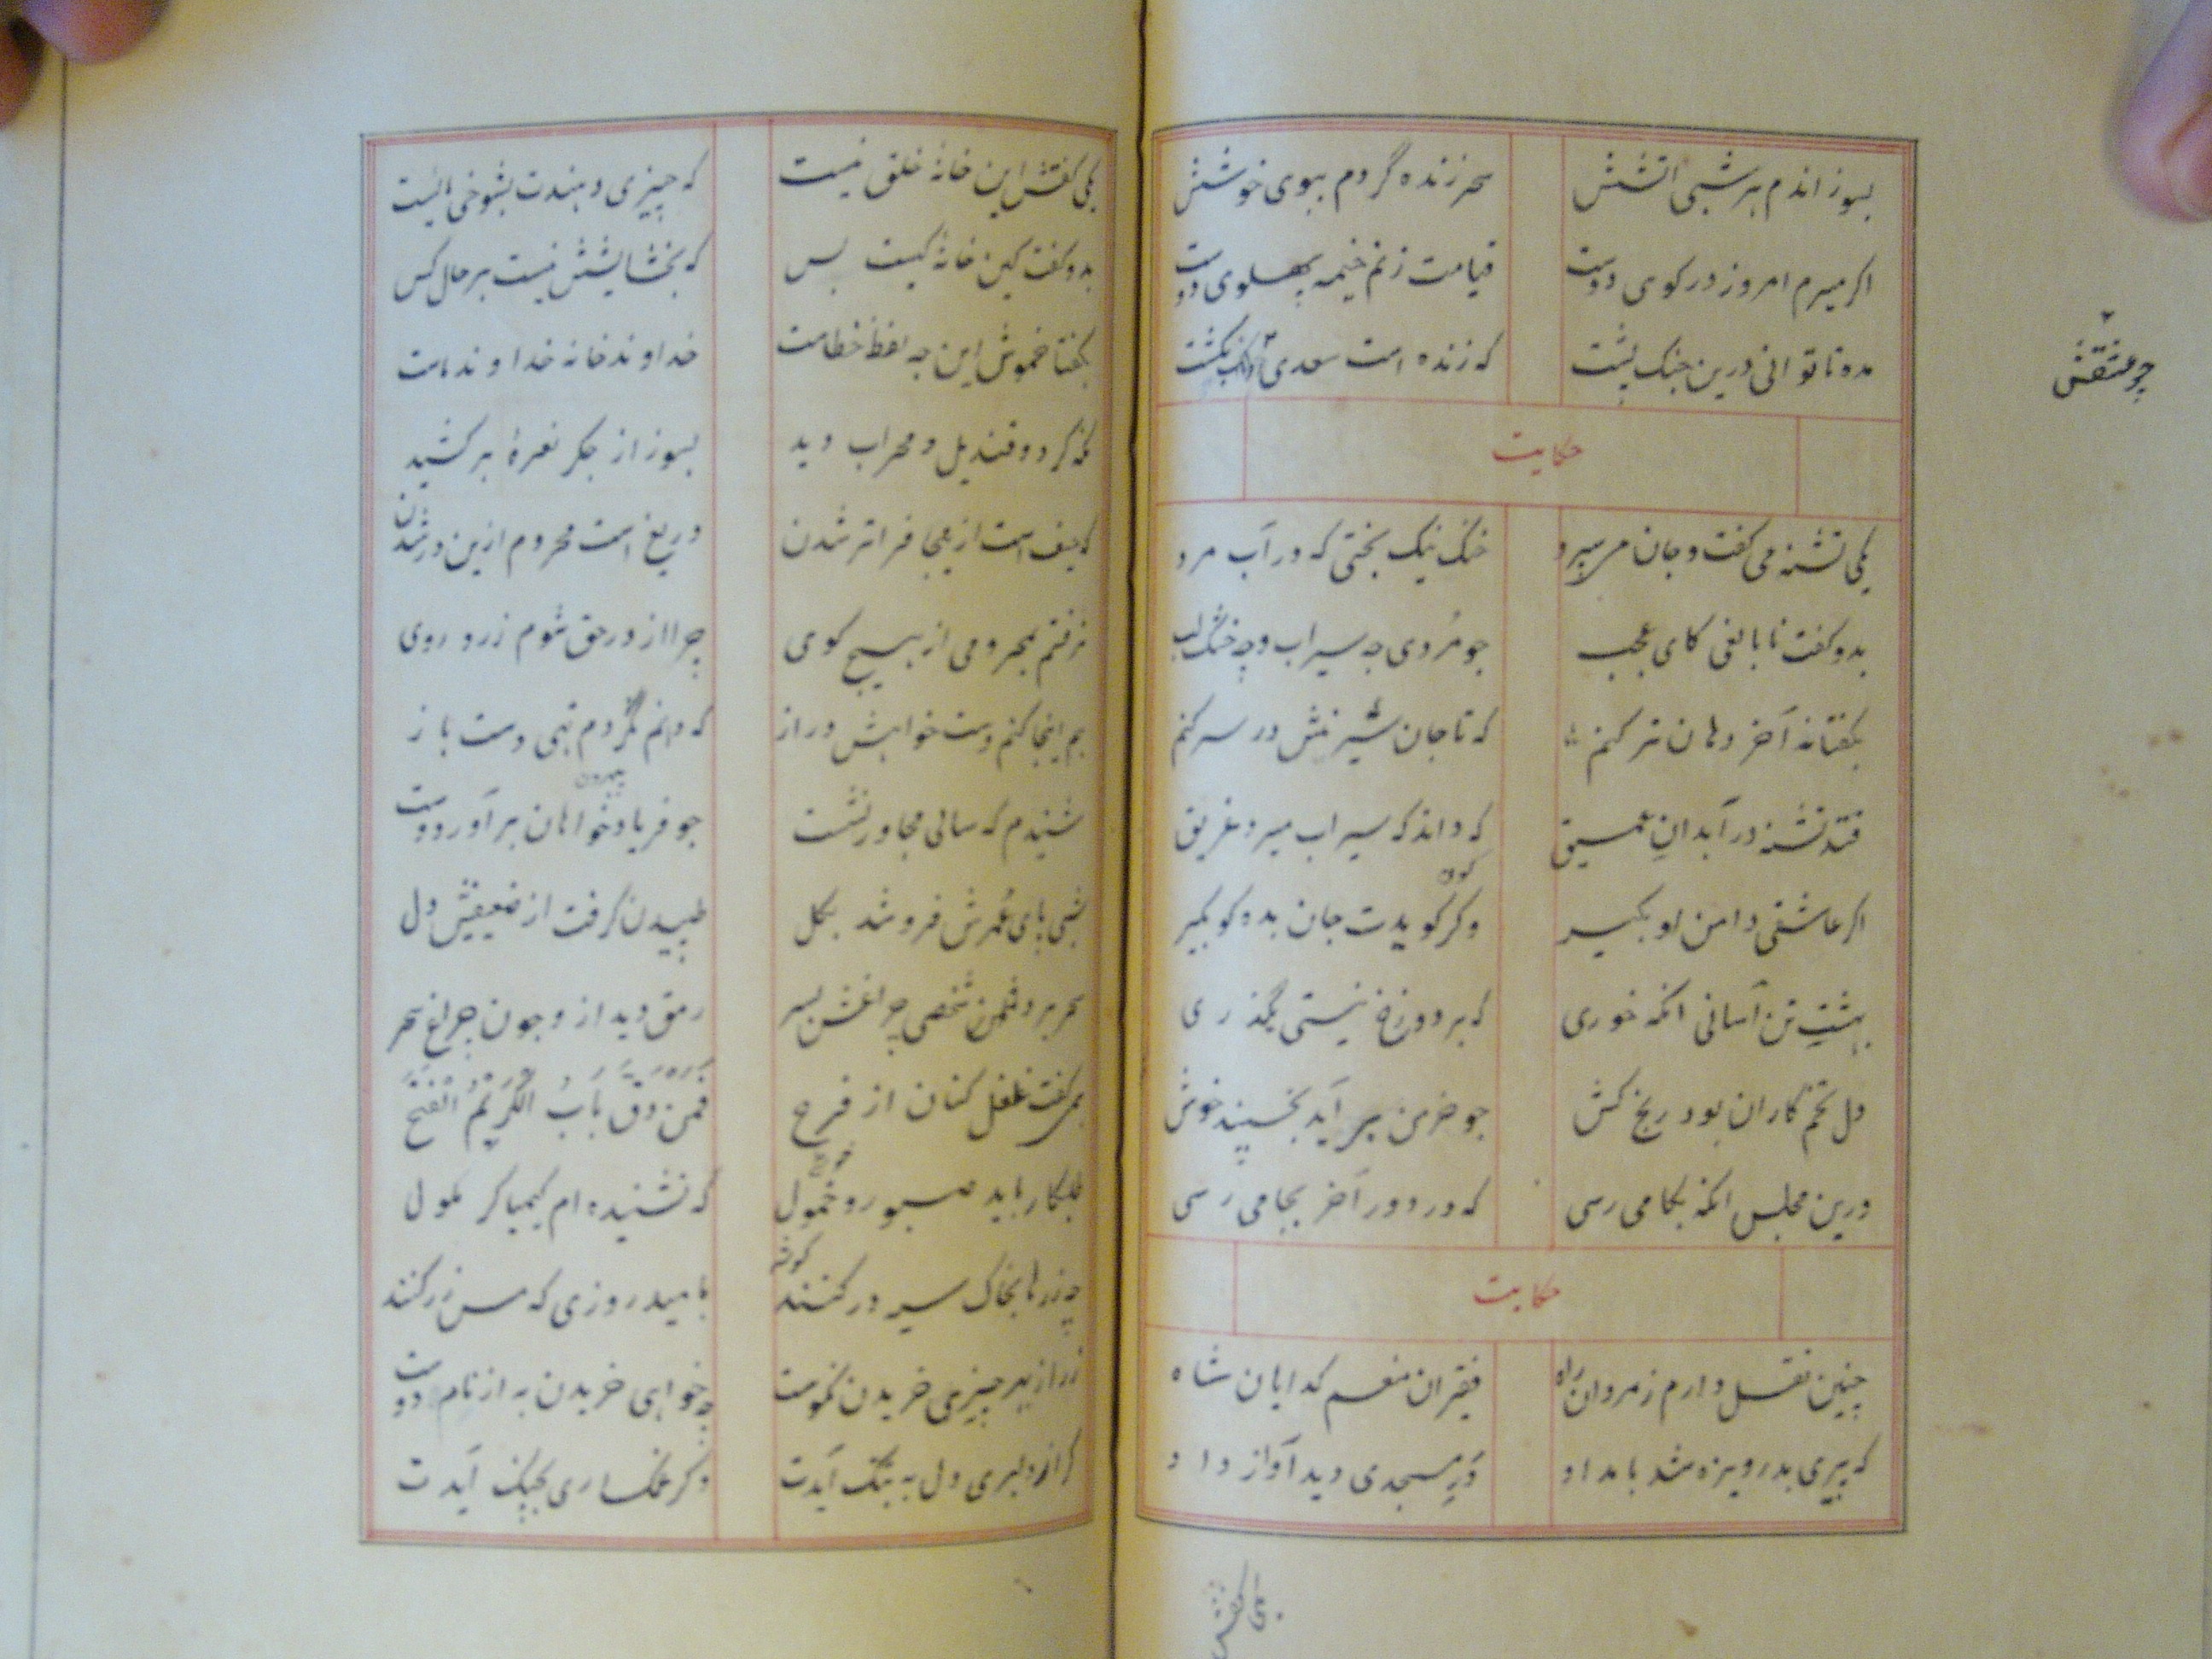 بسوزاندم هر شبی آتشش سحر زنده گردم ببوی خوشش
اکر میرم امروز در کوی دوست قیامت زنم خیمه پهلوی دوست
مده تا توانی درین جنک پشت که زنده است سعدی بکشت
چو عشقش
حکایت
یکی تشنه می کفت و جان می سپرد خنک نیک بختی که در آب مرد
بدو کفت نابالغی کای عجب جو مُردی جه سیراب وچه خشک لب
بکفتا نه آخر دهان تر کنم که تا جان شیرینش در سر کنم
فتد تشنه در آبدانِ عمیق که داند که سیراب میرد غریق
اکر عاشقی دامن او بکیر وکر کویدت جان بده کو بکیر
بهشتِ تن آسانی انکه خوری که بر دوزخ نیستی بگذری
دل تخم کاران بود رنج کش جو خرمن بر آید بخسپند خوش
درین مجلس انکه بکامی رسی که در دور آخر بجامی رسی
حکایت
چنین نقل دارم ز مردان راه فقیران منعم کدایان شاه
که پیری بدریوزه شد بامداد درِ مسجدی دید آواز داد
یکی کفتش
یکی کفتش این خانهٔ خلق نیست که چیزی دهندت بشوخی مایست
بدو کفت کین خانهٔ کیست بس که بخشایشش نیست بر حال کس
بکفتا خموش این جه لفظ خطاست خداوند خانه خداوند ماست
نکه کرد و قندیل و محراب دید بسوز از جکر نعرهٔ بر کشید
که حیف است از ینجا فراتر شدن دریغ است محروم ازین در شدن
نرفتم بمحرومی از هیچ کوی چرا از در حق شوم زرد روی
هم اینجا کنم دست خواهش دراز که دانم نگردم تهی دست باز
شنیدم که سالی مجاور نشست جو فریاد خواهان بر آورد دست
شبی پای عُمرش فرو شد بکل طپیدن کرفت از ضعیفیش دل
سحر برد شخصی چراغش بسر رمق دید ازو جون چراغ سحر
همی کفت غلغل کنان از فرح فَمن دَقَّ بَابُ الکَریمُ انفتح
طلبکار باید صبور و حمول که نشنیده ام کیمیا کر ملول
چه زرها بخاک سیه در کنند بامید روزی که مس زر کنند
زر از بهر چیزی خریدن نکوست چه خواهی خریدن به از نام دوست
کر از دلبری دل به تنک آیدت وکر غمکساری بچنک آیدت